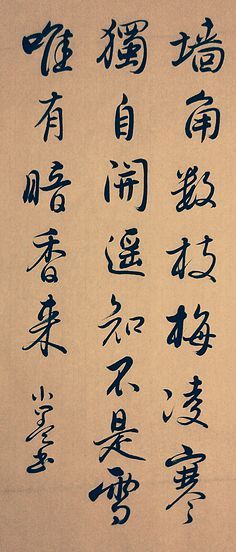 墙角数枝梅凌寒
獨自開遥知不是雪
唯有暗香来